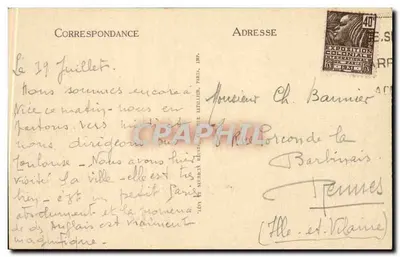 CORRESPONDANCE
ADRESSE
40
EXPOSITION
COLONIALE
Le 19 Juillet.
Nous sommes encore à
Nice ce matin - nous en
partons vers midi et
nous dirigeons sur
Toulouse - Nous avons hier
visité la ville - elle est très
bien - c'est un petit Paris
absolument et la promenade
des Anglais est vraiment
magnifique.
Monsieur Ch. Bannier
la Barbinais
Rennes
(Ille-et-Vilaine)
CARPHILA